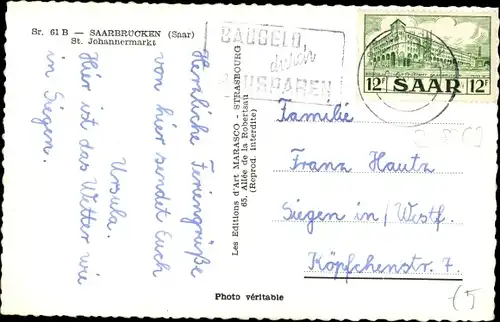 Sr. 61 B — SAARBRUCKEN (Saar)
St. Johannermarkt
Herzliche Feriengrüße
von hier sendet Euch
Ursula.
Hier ist das Wetter wie
in Siegen.
Les Editions d'Art MARASCO - STRASBOURG
65, Allée de la Robertsau
(Reprod. interdite)
BAUGELD
durch
SPAREN
12F SAAR 12F
Familie
Franz Hautz
Siegen in/Westf.
Köpfchenstr. 7.
Photo véritable